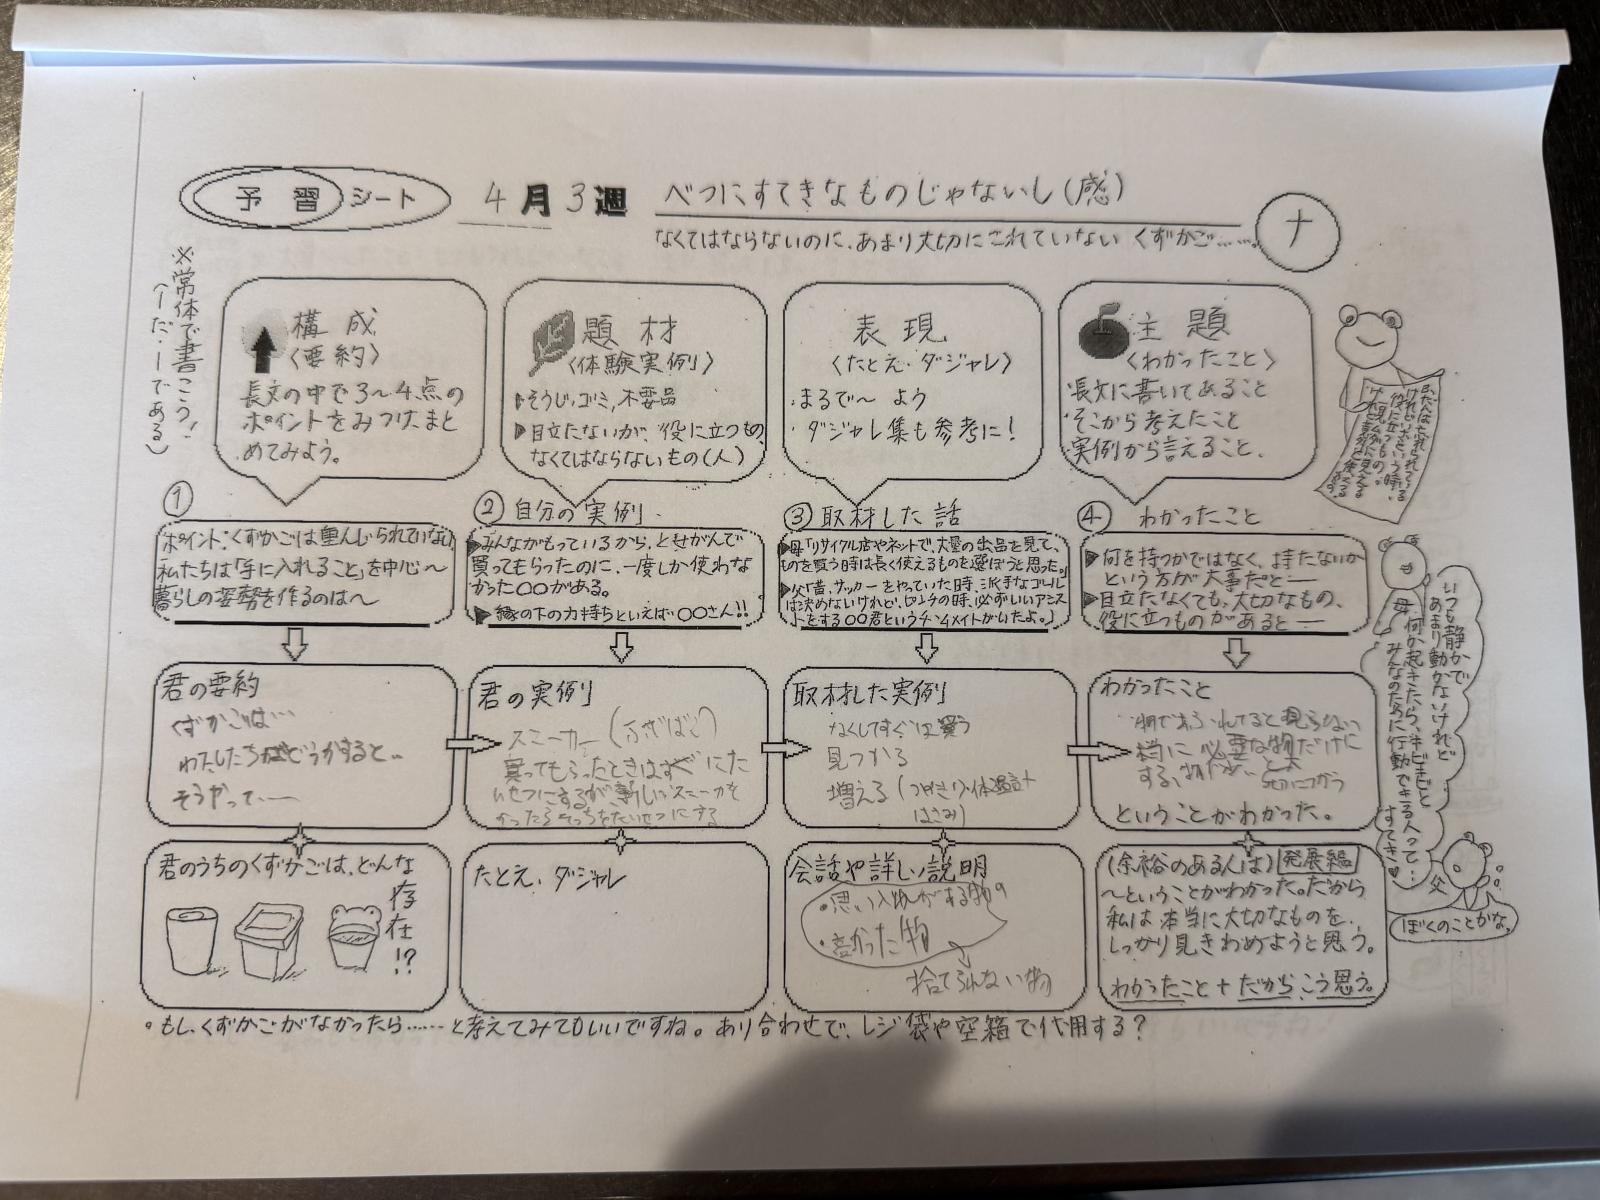 予習シート 4月3週 べつにすてきなものじゃないし(感)
なくてはならないのに、あまり大切にされていない くずかご……。
ナ
※常体で書こう!
(〜だ。〜である)
構成
〈要約〉
長文の中で3〜4点の
ポイントをみつけ、まと
めてみよう。
題材
〈体験実例〉
▶そうじ、ゴミ、不要品
▶目立たないが、役に立つもの、
なくてはならないもの(人)
表現
〈たとえ・ダジャレ〉
・まるで〜よう
・ダジャレ集も参考に!
主題
〈わかったこと〉
・長文に書いてあること
・そこから考えたこと
・実例から言えること、
①
ポイント:くずかごは重んじられていない
私たちは「手に入れること」を中心〜
暮らしの姿勢を作るのは〜
②自分の実例
▶みんながもっているから、とせがんで
買ってもらったのに、一度しか使わな
かった○○がある。
▶縁の下の力持ちといえば・○○さん!!
③取材した話
▶母「リサイクル店やネットで、大量の出品を見て、
ものを買う時は長く使えるものを選ぼうと思った。」
▶父「昔、サッカーをやっていた時、派手なゴール
は決めないけれど、ピンチの時、必ずいいアシス
トをする○○君というチームメイトがいたよ。」
④わかったこと
▶何を持つかではなく、持たないか
という方が大事だと―
▶目立たなくても、大切なもの、
役に立つものがあると―
君の要約
くずかごは…
わたしたちがどうかすると…
そうやって、―
君の実例
スニーカー
買ってもらったときはすぐにた
いせつにするが、新しいスニーカーを
かったらそっちをたいせつにする
取材した実例
なくしてすぐは買う
見つかる
増える(つめきり・体温計
はさみ)
わかったこと
物であふれてると見らない
必要な物だけに
する
ということがわかった。
君のうちのくずかごは、どんな
存在!?
たとえ・ダジャレ
会話や詳しい説明
・思い入れがある物
・高かった物
捨てられない物
(余裕のある人は)発展編
〜ということがわかった。だから
私は、本当に大切なものを、
しっかり見きわめようと思う。
わかったこと+だから、こう思う。
いつも静かで
あまり動かないけれど
何か起きたら、キビキビと
みんなのために行動できる人って…
すてき♥
母
父
ぼくのことかな。
。もし、くずかごがなかったら……と考えてみてもいいですね。あり合わせで、レジ袋や空箱で代用する?